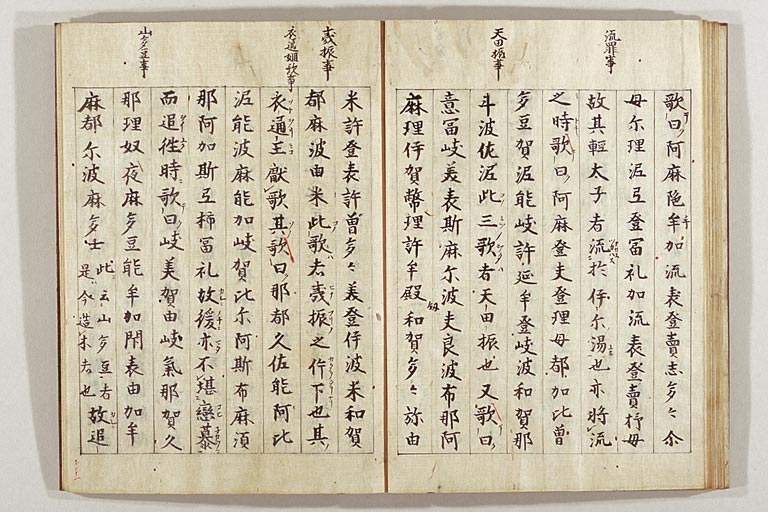 流罪事
天田振事
歌曰阿麻陁牟加流表登賣志多〻尒
母尓理泥弖登冨礼加流表登賣抒母
故其輕太子者流於伊尓湯也亦將流
之時歌曰阿麻登夫登理母都加比曽
多豆賀泥能岐許延牟登岐波和賀那
斗波佐泥此三歌者天田振也又歌曰
意冨岐美表斯麻尓波夫良波布那阿
麻理伊賀幣理許牟叙和賀多〻弥由
夷振事
衣通姫歌事
山多豆事
米許登表許曽多〻美登伊波米和賀
都麻波由米此歌者夷振之片下也其
衣通王獻歌其歌曰那都久佐能阿比
泥能波麻能加岐賀比尓阿斯布麻湏
那阿加斯弖杼冨礼故後亦不堪戀慕
而追徃時歌曰岐美賀由岐氣那賀久
那理奴夜麻多豆能牟加閇表由加牟
麻都尓波麻多士此云山多豆者是今造木者也故追